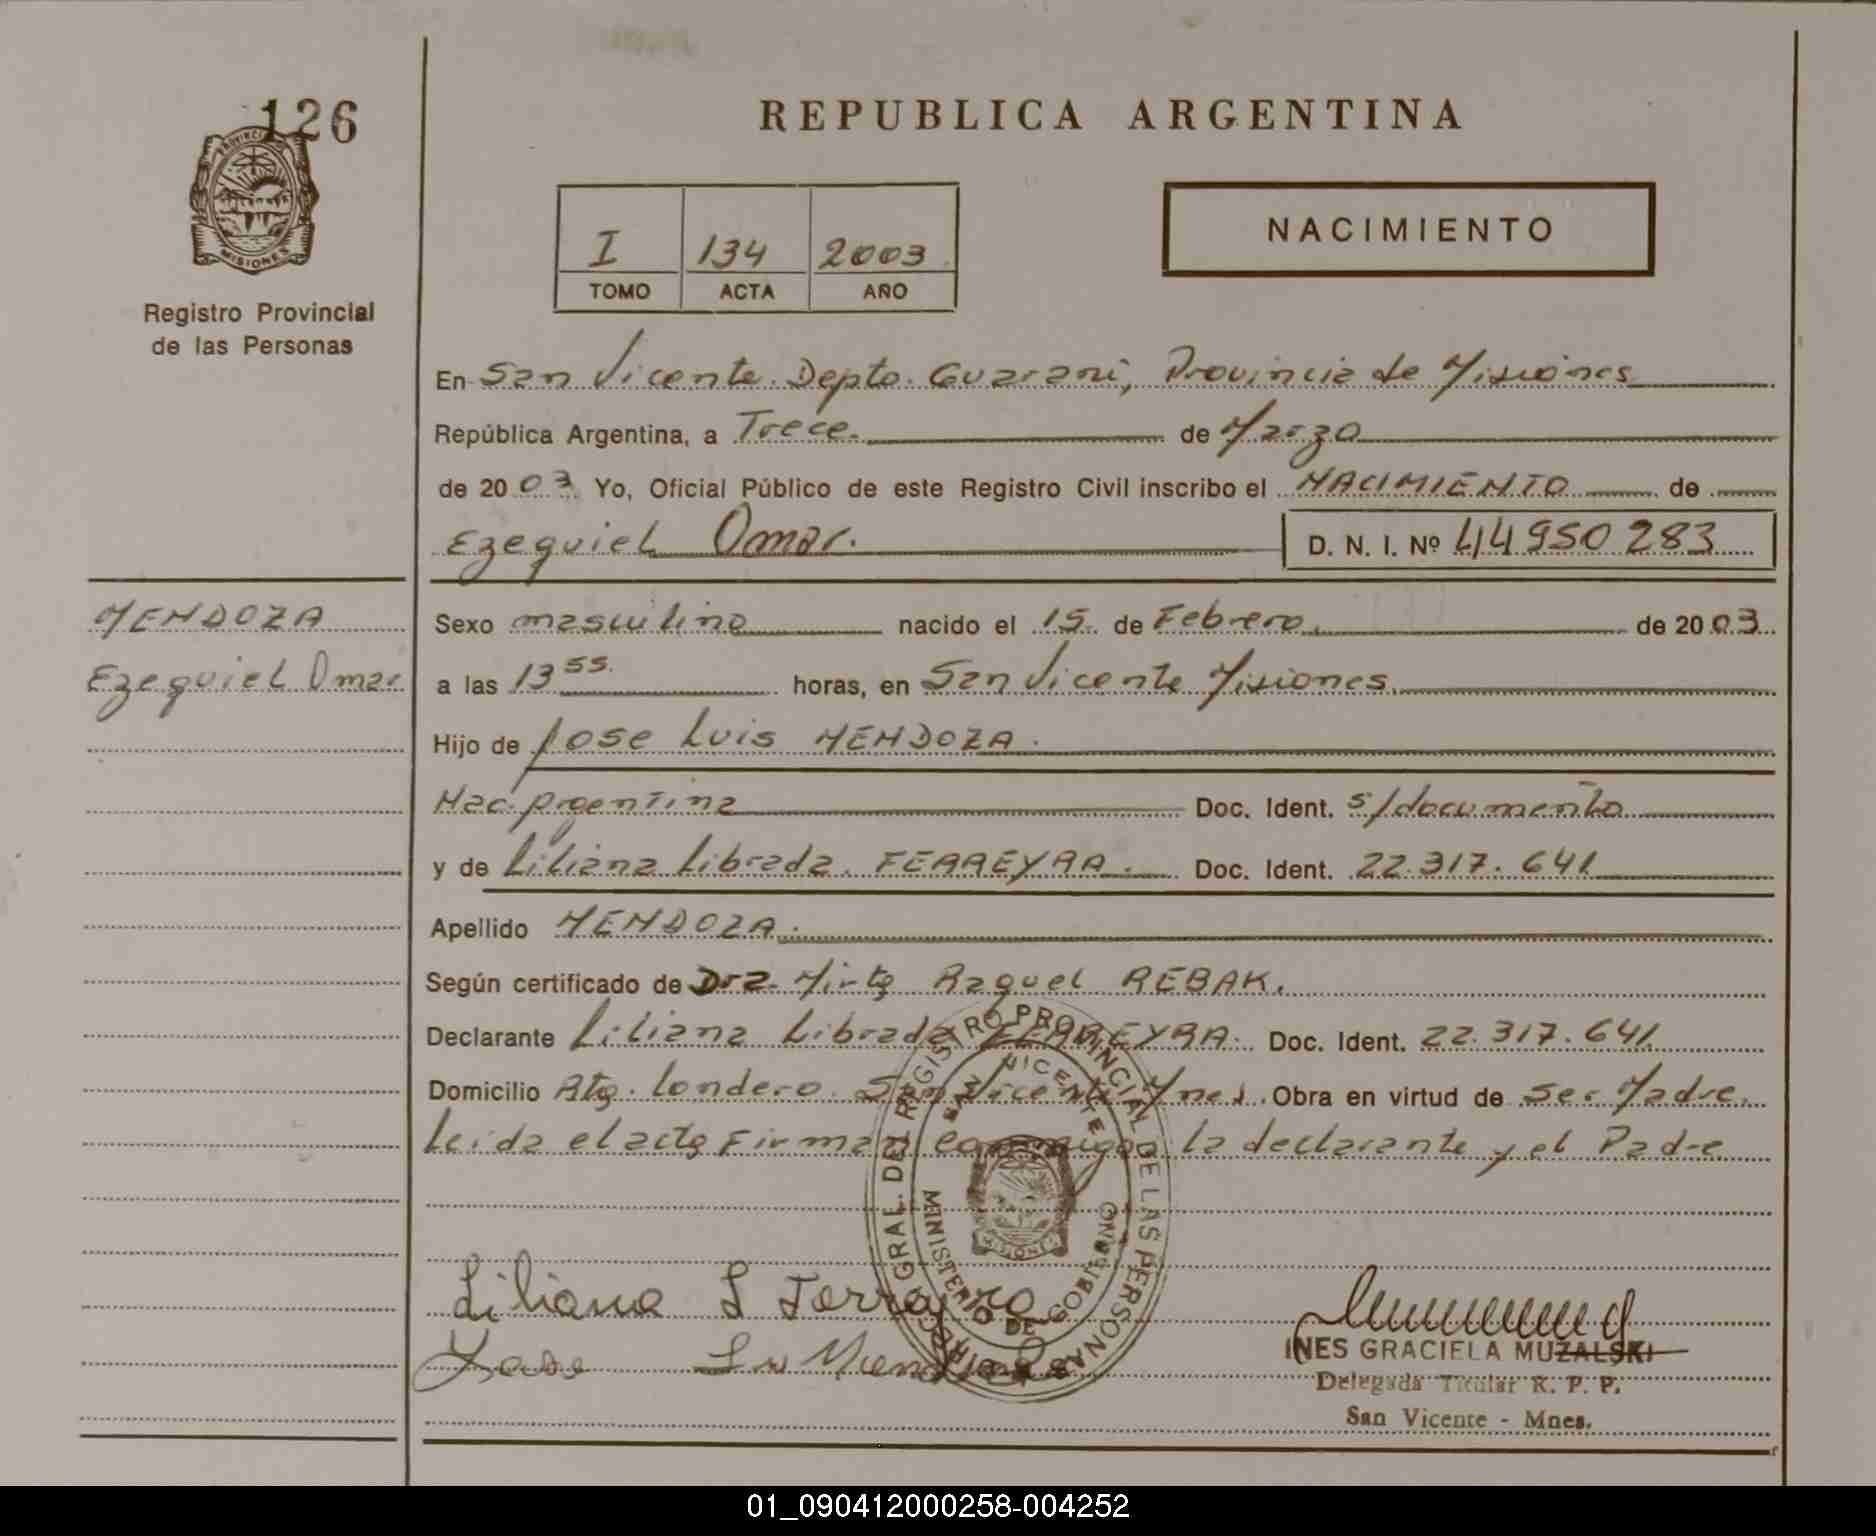 126
PROVINCIA DE
MISIONES
Registro Provincial
de las Personas
REPUBLICA ARGENTINA
I 134 2003
TOMO ACTA AÑO
NACIMIENTO
En San Vicente Depto. Guarani, Provincia de Misiones
República Argentina, a Trece. de Marzo
de 2003 Yo, Oficial Público de este Registro Civil inscribo el NACIMIENTO de
Ezequiel Omar. D. N. I. Nº 44950283
MENDOZA
Ezequiel Omar
Sexo masculino nacido el 15. de Febrero. de 2003
a las 13 55. horas, en San Vicente Misiones.
Hijo de Jose Luis MENDOZA.
Nac. Argentina Doc. Ident. s/documento
y de Liliana Librada. FERREYRA. Doc. Ident. 22.317.641
Apellido MENDOZA.
Según certificado de Dra. Mirta Raquel REBAK.
Declarante Liliana Librada FERREYRA. Doc. Ident. 22.317.641
Domicilio Rta. Londero. San Vicente Mnes. Obra en virtud de Ser Madre.
Leida el acta Firman conmigo la declarante y el Padre
DIREC. GRAL. DEL REGISTRO PROVINCIAL DE LAS PERSONAS
SAN VICENTE
MINISTERIO DE GOBIERNO
MISIONES
Liliana L Ferreyra
Jose Lu Mendoza
INES GRACIELA MUZALSKI
Delegada Titular R. P. P.
San Vicente - Mnes.
01_090412000258-004252